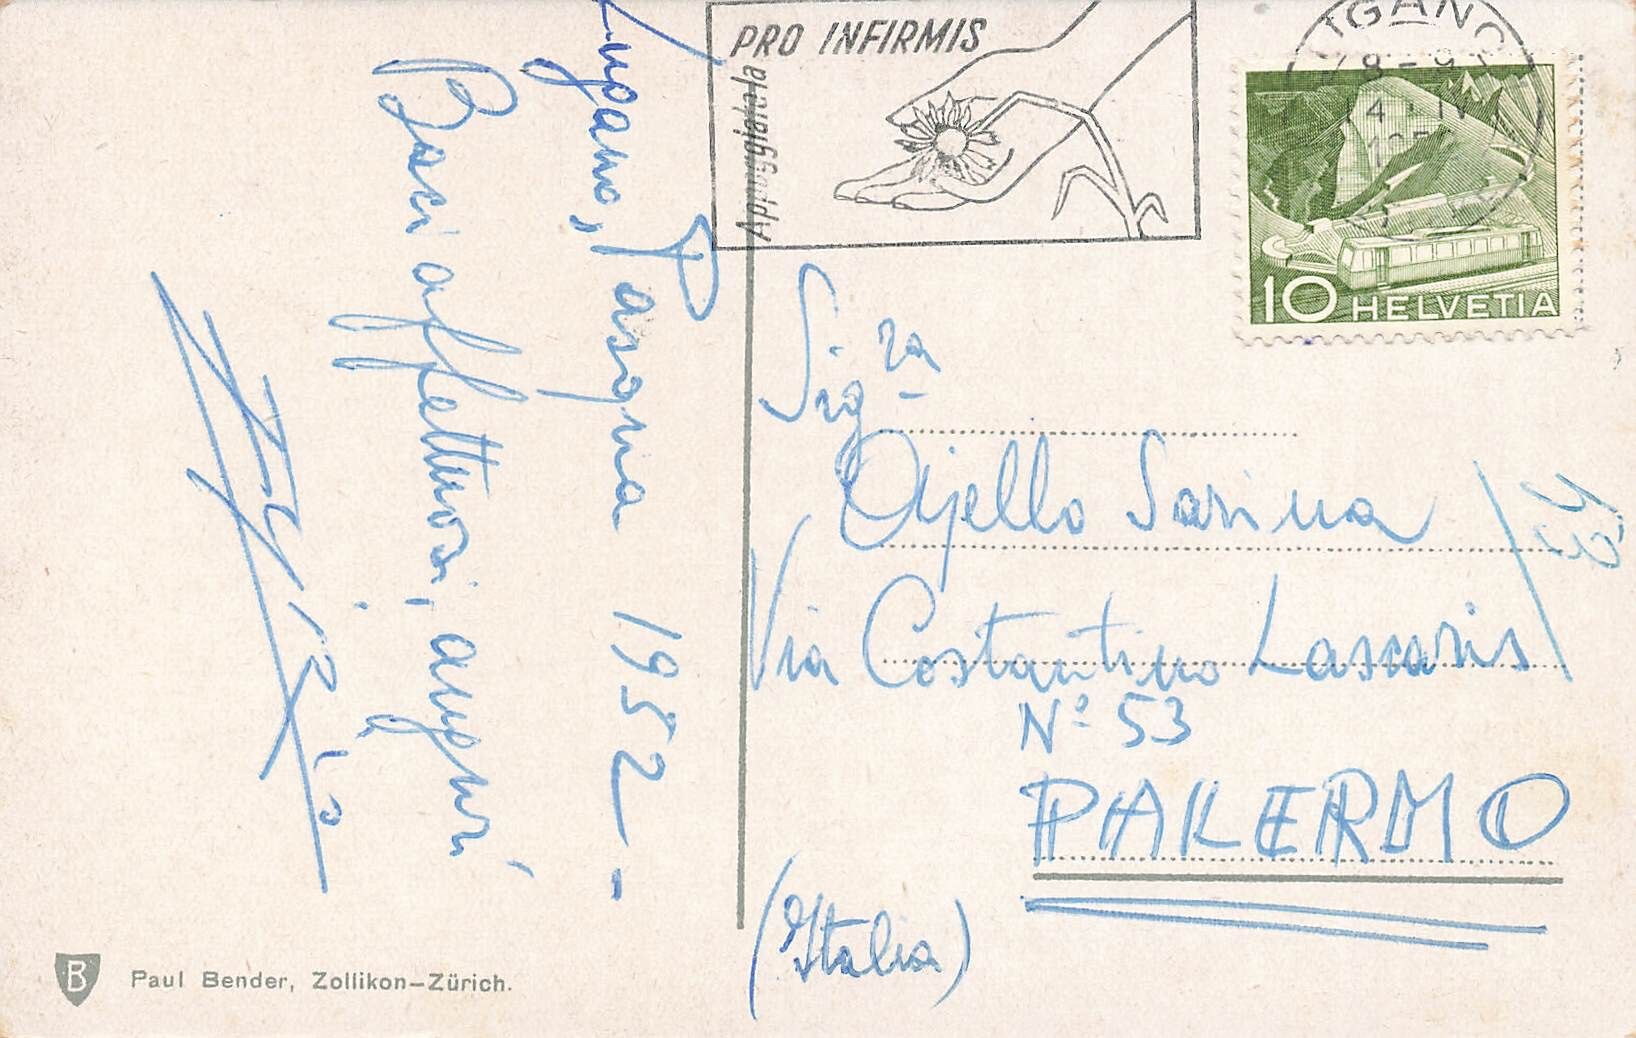 Lugano, Pasqua 1952 -
Baci affettuosi, auguri
PRO INFIRMIS
Appoggiatela
10 HELVETIA
Sig.ra
Ajello Sarina
Via Costantino Lascaris
N° 53
PALERMO
(Italia)
53
B
Paul Bender, Zollikon—Zürich.